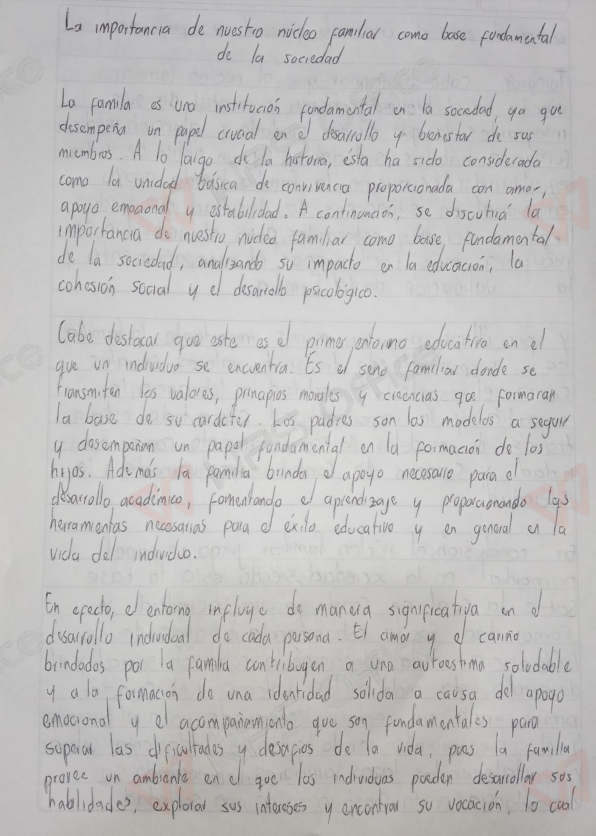 La importancia de nuestro núcleo familiar como base fundamental
de la sociedad
La familia es una institución fundamental en la sociedad, ya que
desempeña un papel crucial en el desarrollo y bienestar de sus
miembros. A lo largo de la historia, ésta ha sido considerada
como la unidad básica de convivencia proporcionada con amor,
apoyo emocional y estabilidad. A continuación, se discutirá la
importancia de nuestro núcleo familiar como base fundamental
de la sociedad, analizando su impacto en la educación, la
cohesión social y el desarrollo psicológico.
Cabe destacar que este es el primer entorno educativo en el
que un individuo se encuentra. Es el seno familiar donde se
transmiten los valores, principios morales y creencias que formaran
la base de su carácter. Los padres son los modelos a seguir
y desempeñan un papel fundamental en la formación de los
hijos. Además la familia brinda el apoyo necesario para el
desarrollo académico, fomentando el aprendizaje y proporcionando las
herramientas necesarias para el éxito educativo y en general en la
vida del individuo.
En efecto, el entorno influye de manera significativa en el
desarrollo individual de cada persona. El amor y el cariño
brindados por la familia contribuyen a una autoestima saludable
y a la formación de una identidad sólida a causa del apoyo
emocional y el acompañamiento que son fundamentales para
superar las dificultades y desafíos de la vida, pues la familia
provee un ambiente en el que los individuos pueden desarrollar sus
habilidades, explorar sus intereses y encontrar su vocación, lo cual